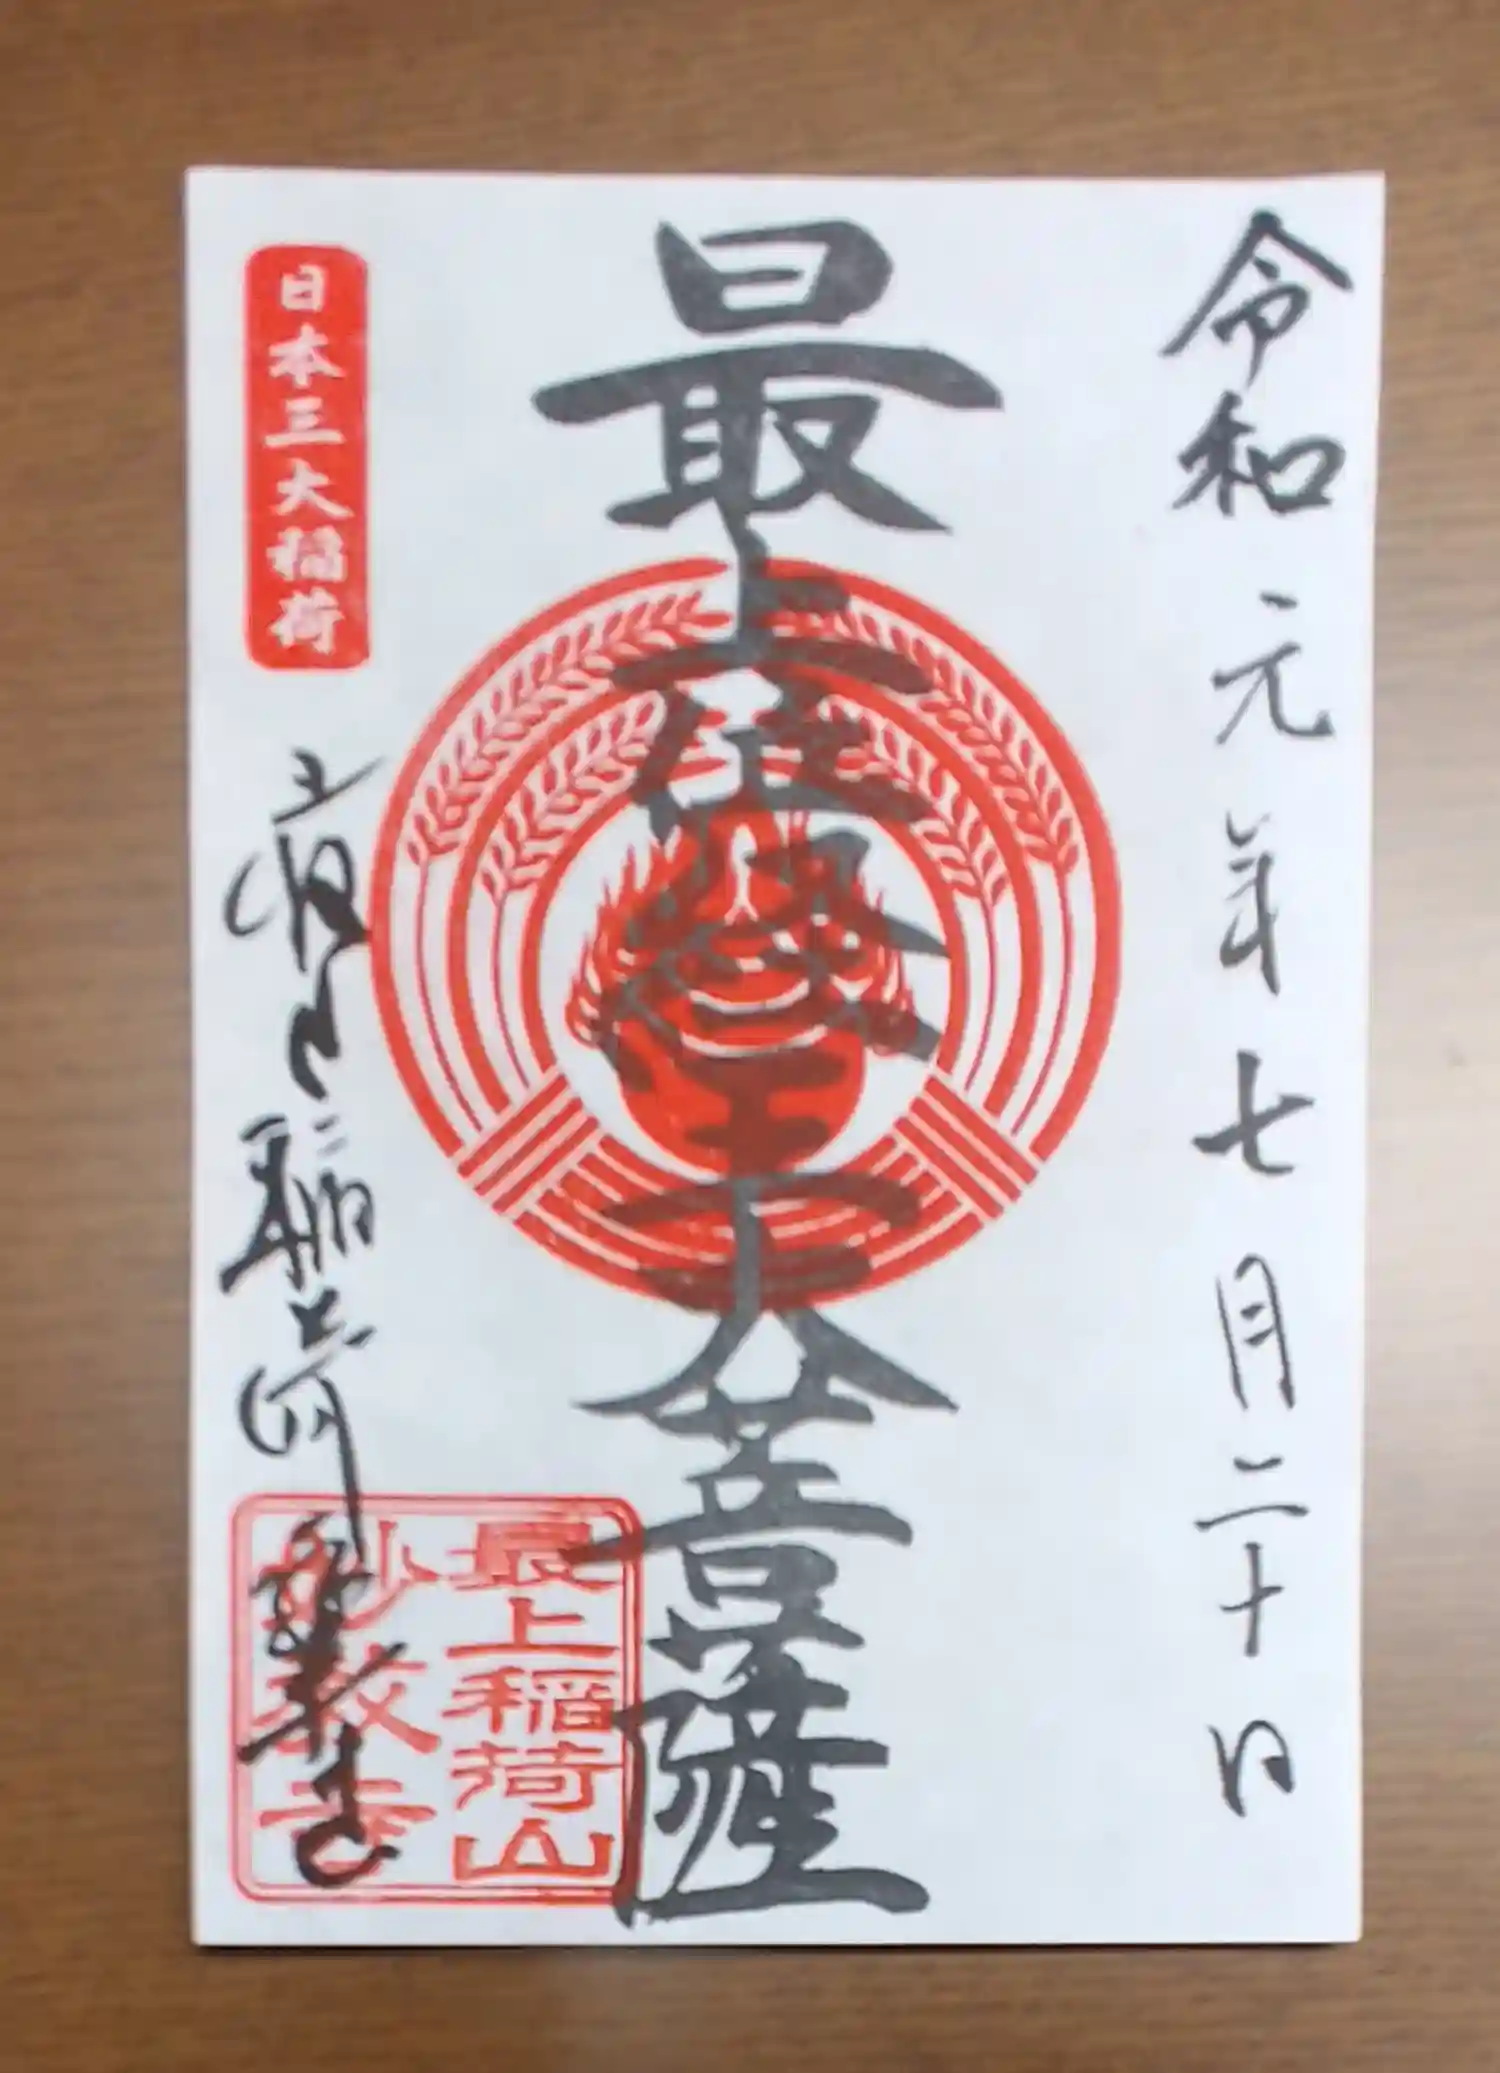 令和元年七月二十日
最上位経王大菩薩
日本三大稲荷
稲荷
最上稲荷山
妙教寺